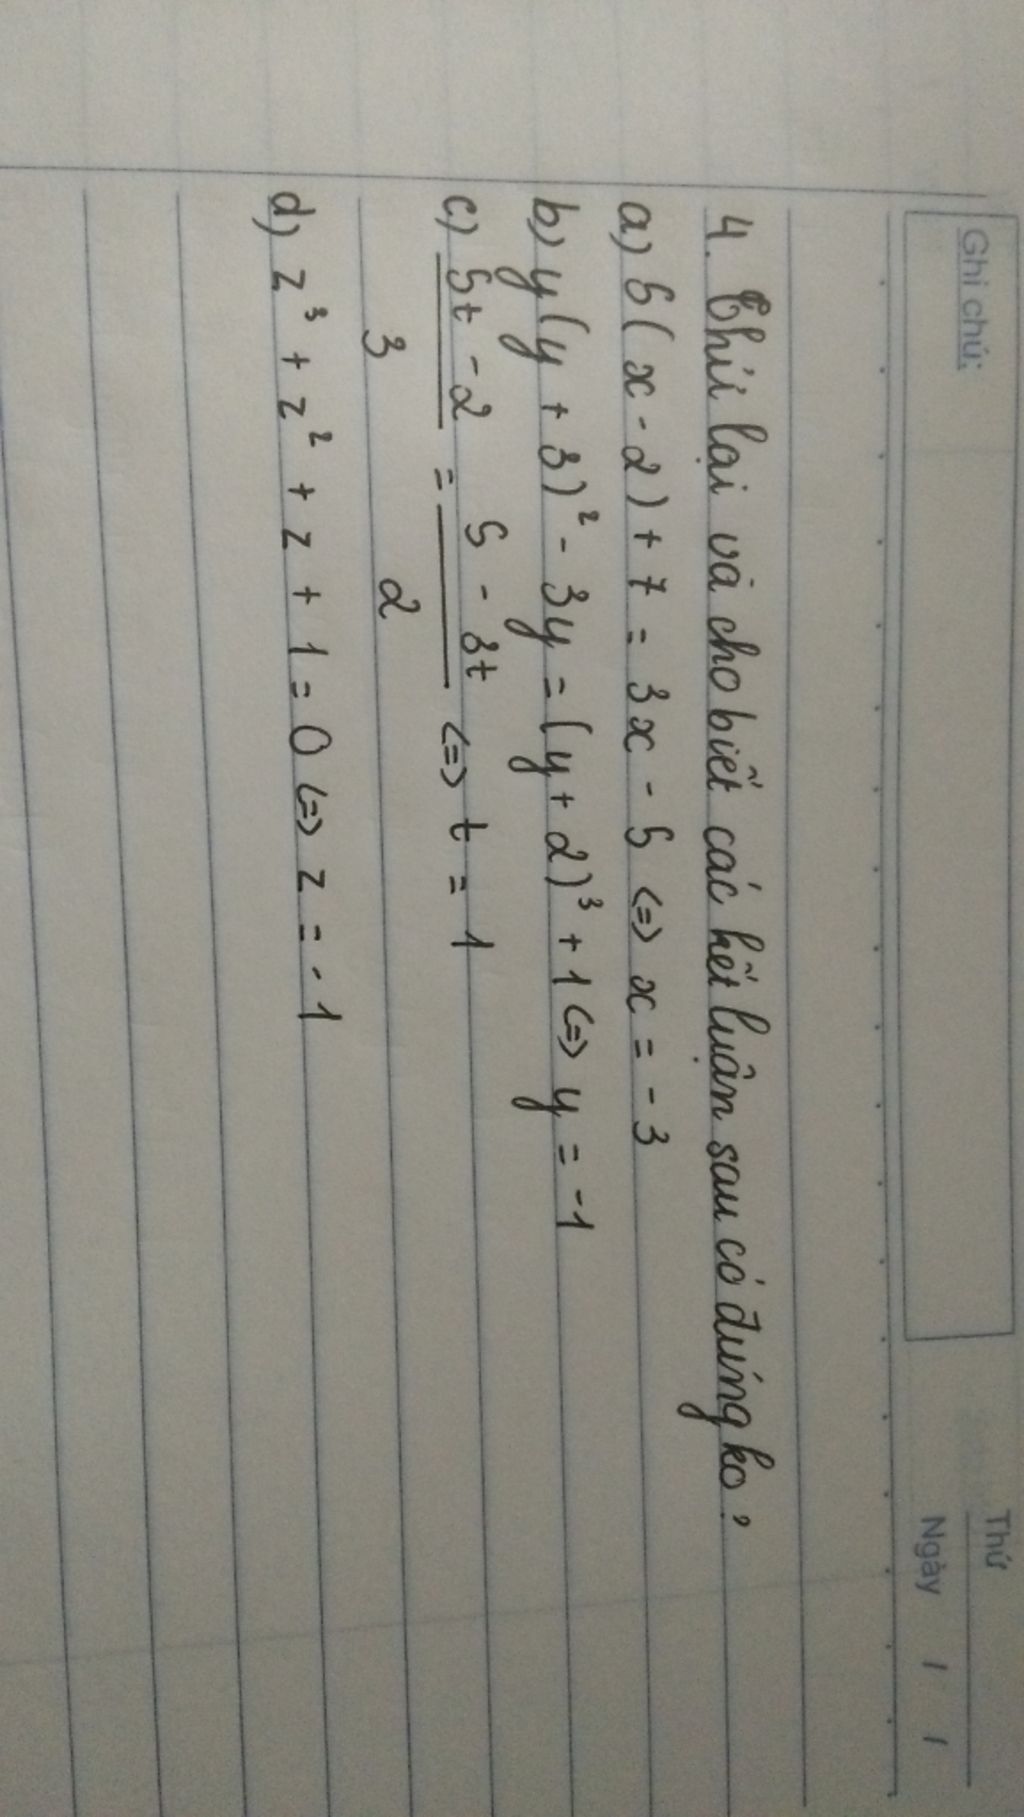 Ghi chú:
Thứ
Ngày / /
4. Thử lại và cho biết các kết luận sau có đúng ko?
a) 5(x - 2) + 7 = 3x - 5 <=> x = -3
b) y(y + 3)² - 3y = (y + 2)³ + 1 <=> y = -1
c) 5t - 2 / 3 = 5 - 3t / 2 <=> t = 1
d) z³ + z² + z + 1 = 0 <=> z = -1